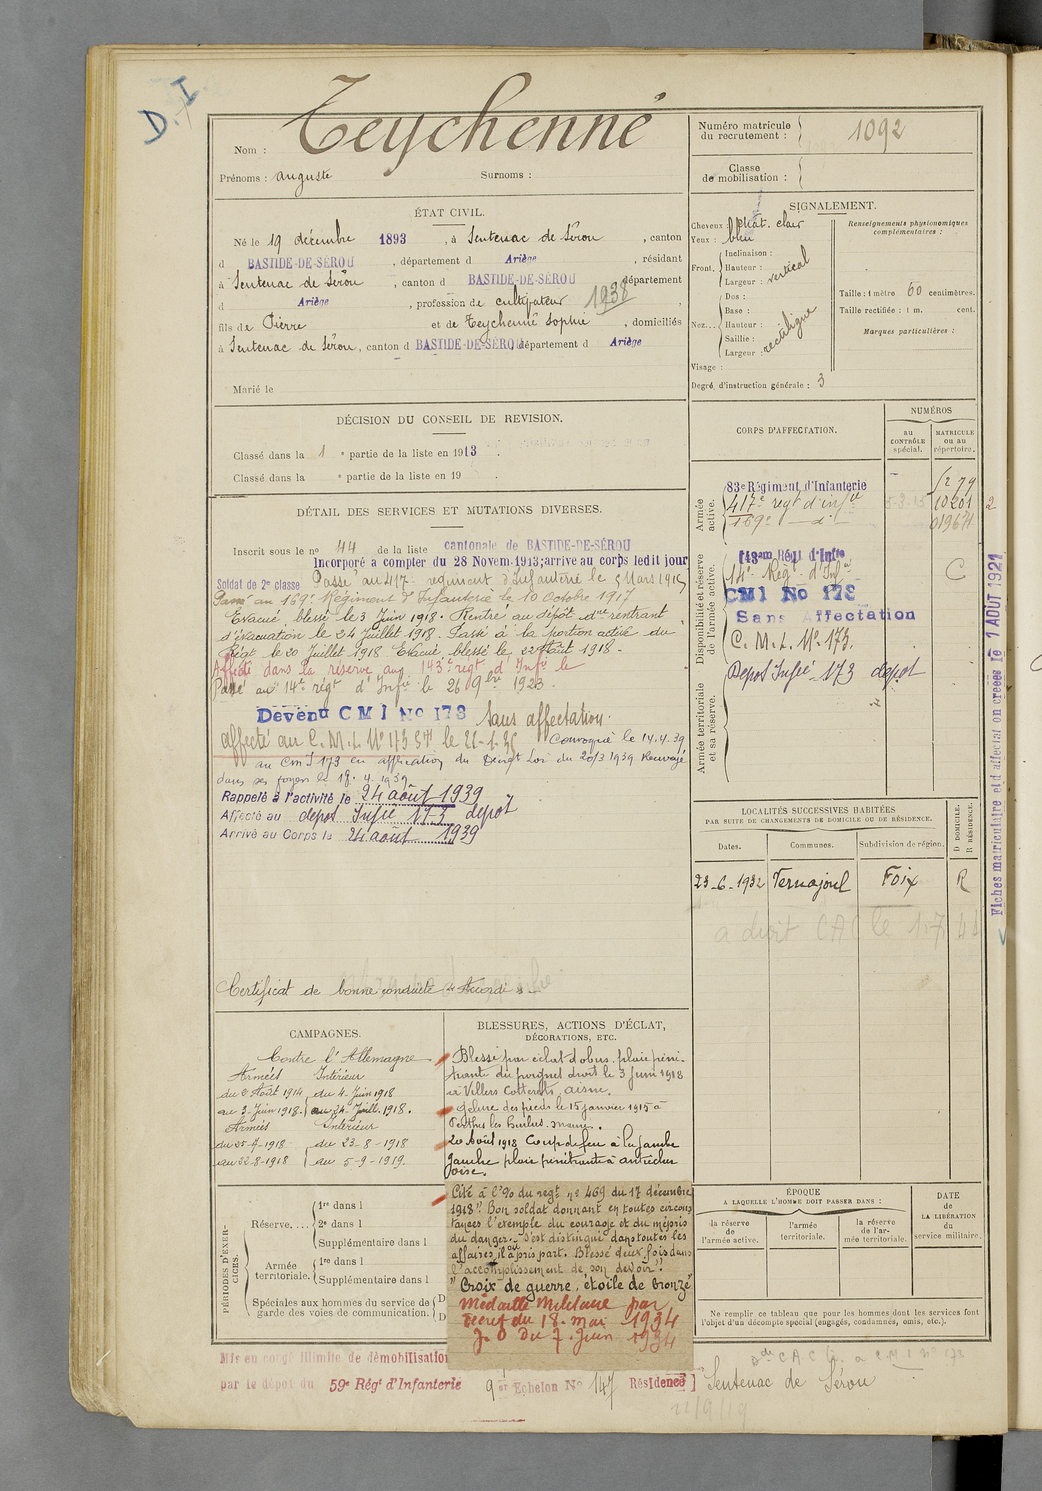 D. I
Nom : Teychenné
Prénoms : auguste Surnoms :
ÉTAT CIVIL.
Né le 19 décembre 1893, à Sentenac de Sérou, canton
d BASTIDE-DE-SÉROU, département d Ariège, résidant
à Sentenac de Sérou, canton d BASTIDE-DE-SÉROU département
d Ariège, profession de cultivateur 1938,
fils de Pierre et de Teychenné Sophie, domiciliés
à Sentenac de Sérou, canton d BASTIDE-DE-SÉROU, département d Ariège
Marié le
DÉCISION DU CONSEIL DE REVISION.
Classé dans la 1 e partie de la liste en 1913.
Classé dans la e partie de la liste en 19 .
DÉTAIL DES SERVICES ET MUTATIONS DIVERSES.
Inscrit sous le no 44 de la liste cantonale de BASTIDE-DE-SÉROU
Incorporé a compter du 28 Novem. 1913; arrivé au corps ledit jour
Soldat de 2e classe Passé au 417e régiment d'Infanterie le 5 Mars 1915
Passé au 169e Régiment d'Infanterie le 10 Octobre 1917
Evacué, blessé le 3 Juin 1918. Rentré au dépôt d rentrant
d'évacuation le 24 Juillet 1918. Passé à la portion active du
Régt le 20 Juillet 1918 Evacué blessé le 22 Août 1918 -
Affecté dans la réserve au 143e régt d'Infie le
Passé au 14e régt d'Infie le 26 9bre 1923.
Devenu C M I No 173 Sans affectation.
affecté au C. M. I. No 173 le Convoqué le 14.4.39
au Cm I 173 en application du Loi du 20/3 1939 Renvoyé
dans ses foyers le 18. 4. 1939
Rappelé à l'activité le 24 août 1939
Affecté au depot Infie 173 depot
Arrivé au Corps le 24 août 1939
Certificat de bonne conduite "Accordé".
CAMPAGNES.
Contre l'Allemagne
Armées Intérieur
du 2 Août 1914 du 4 Juin 1918
au 3 Juin 1918. au 24 Juill. 1918.
Armées Intérieur
du 25-7-1918 du 23-8-1918
au 22-8-1918 au 5-9-1919.
BLESSURES, ACTIONS D'ÉCLAT,
DÉCORATIONS, ETC.
Blessé par éclat d'obus. plaie péné-
trante du poignet droit le 3 Juin 1918
à Villers Cotterets, aisne.
gelure des pieds le 15 janvier 1915 à
Perthes les Hurlus. marne.
20 Août 1918 Coup de feu à la jambe
gauche plaie pénétrante à
oise.
Cité à l'o/ du regt no 469 du 17 décembre
1918 "Bon soldat donnant en toutes circons
tances l'exemple du courage et du mépris
du danger. S'est distingué dans toutes les
affaires où il a pris part. Blessé deux fois dans
l'accomplissement de son devoir".
"Croix de guerre, étoile de bronze"
Médaille Militaire par
décret du 18. mai 1934
J. O du 7. Juin 1934
PÉRIODES D'EXERCICES.
Réserve.... 1re dans l
2e dans l
Supplémentaire dans l
Armée territoriale. 1re dans l
Supplémentaire dans l
Spéciales aux hommes du service de
garde des voies de communication.
Mis en congé illimité de démobilisation
par le dépôt du 59e Régt d'Infanterie 9e Echelon No 147 Résidence Sentenac de Sérou
Numéro matricule du recrutement : 1092
Classe de mobilisation :
SIGNALEMENT.
Cheveux : chât. clair
Yeux : bleu
Front. Inclinaison :
Hauteur : vertical
Largeur :
Nez... Dos :
Base :
Hauteur : rectiligne
Saillie :
Largeur :
Visage :
Degré d'instruction générale : 3
Renseignements physionomiques
complémentaires :
Taille : 1 mètre 60 centimètres.
Taille rectifiée : 1 m. cent.
Marques particulières :
CORPS D'AFFECTATION.
NUMÉROS
au CONTRÔLE spécial.
MATRICULE ou au répertoire.
Armée active.
83e Régiment d'Infanterie
417e régt d'infie 10201
169e — d° — 019671
Disponibilité et réserve de l'armée active.
143em Régt d'Infie
14e Régt d'Infie
CMI No 173
Sans Affectation
C. M. I. No 173.
Armée territoriale et sa réserve.
Depot Infie 173 depot
LOCALITÉS SUCCESSIVES HABITÉES
PAR SUITE DE CHANGEMENTS DE DOMICILE OU DE RÉSIDENCE.
Dates. Communes. Subdivision de région. D DOMICILE. R RÉSIDENCE.
23-6-1932 Vernajoul Foix R
a droit CAC le
ÉPOQUE
A LAQUELLE L'HOMME DOIT PASSER DANS :
la réserve de l'armée active.
l'armée territoriale.
la réserve de l'armée territoriale.
DATE
de
LA LIBÉRATION
du
service militaire.
Ne remplir ce tableau que pour les hommes dont les services font
l'objet d'un décompte spécial (engagés, condamnés, omis, etc.).
Fiches matriculaire et d'affectation créées le 1 AOUT 1921